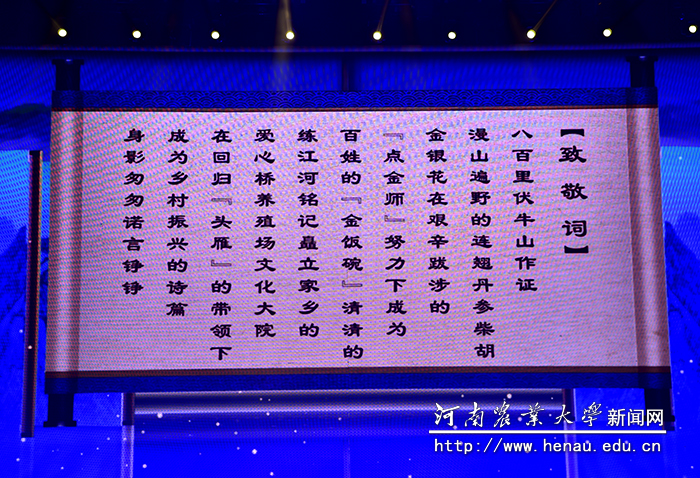 【致敬词】
八百里伏牛山作证
漫山遍野的连翘丹参柴胡
金银花在艰辛跋涉的
『点金师』努力下成为
百姓的『金饭碗』清清的
练江河铭记矗立家乡的
爱心桥养殖场文化大院
在回归『头雁』的带领下
成为乡村振兴的诗篇
身影匆匆诺言铮铮
河南农业大学新闻网
http://www.henau.edu.cn